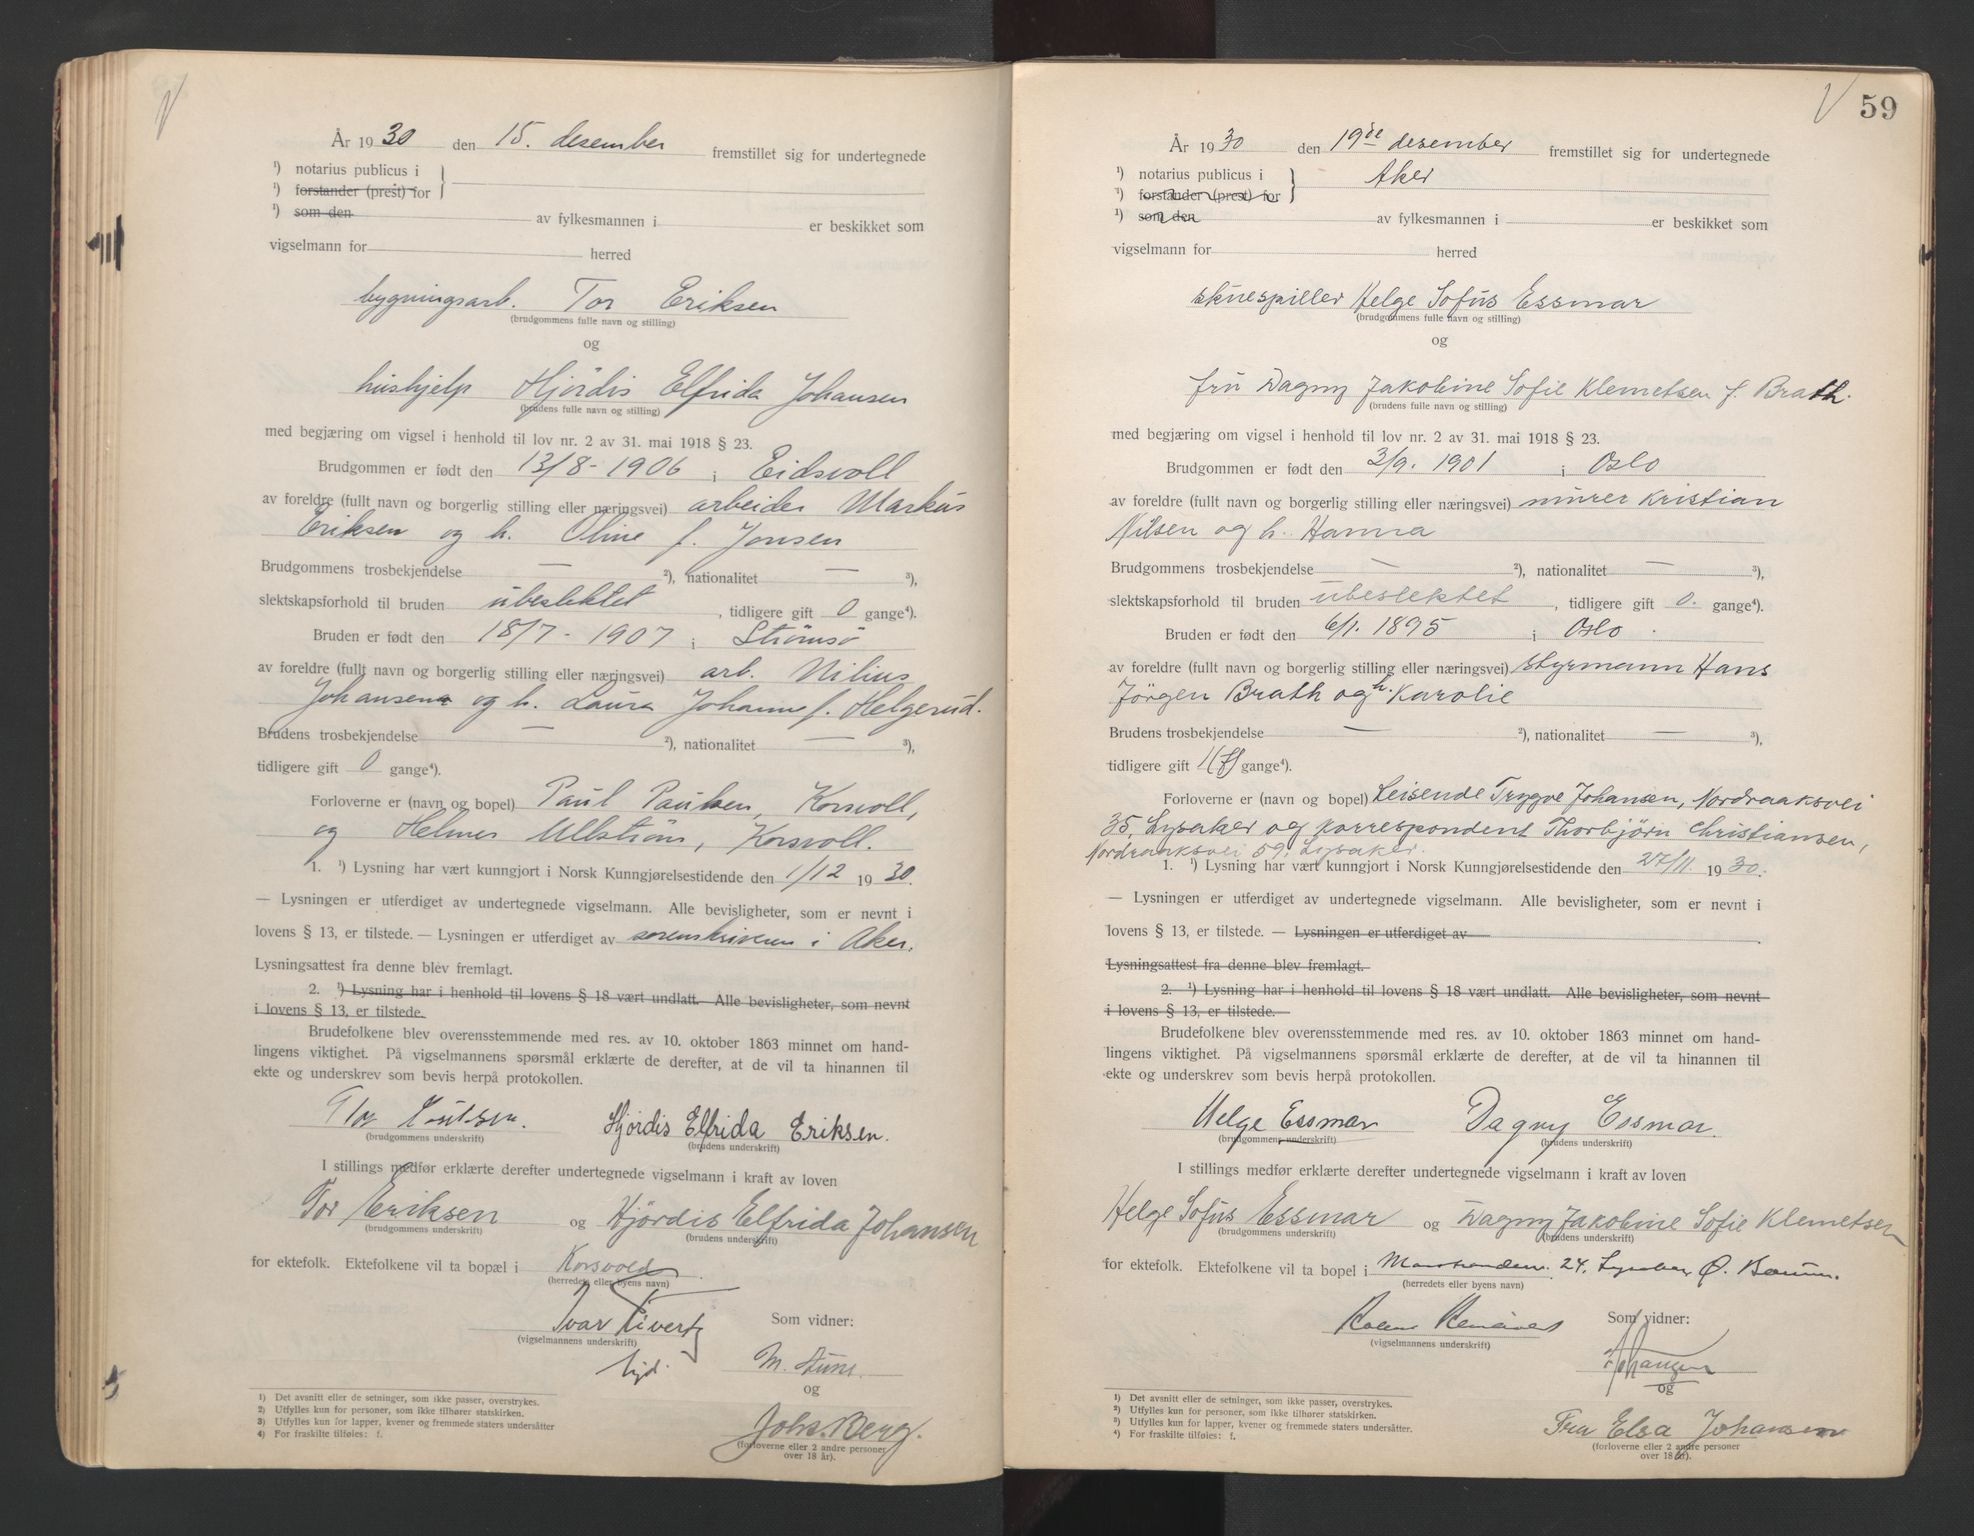 År 1930 den 15. desember fremstillet sig for undertegnede
¹) notarius publicus i
¹) forstander (prest) for
¹) som den av fylkesmannen i er beskikket som
vigselmann for herred
bygningsarb. Tor Eriksen
(brudgommens fulle navn og stilling)
og
hushjelp Hjördis Elfrida Johansen
(brudens fulle navn og stilling)
med begjæring om vigsel i henhold til lov nr. 2 av 31. mai 1918 § 23.
Brudgommen er født den 13/8 - 1906 i Eidsvoll
av foreldre (fullt navn og borgerlig stilling eller næringsvei) arbeider Markus
Eriksen og h. Oline f. Jonsen
Brudgommens trosbekjendelse — ²), nationalitet — ³),
slektskapsforhold til bruden ubeslektet, tidligere gift 0 gange⁴).
Bruden er født den 18/7 - 1907 i Strömsö
av foreldre (fullt navn og borgerlig stilling eller næringsvei) arb. Nilius
Johansen og h. Laura Johanne f. Helgerud.
Brudens trosbekjendelse — ²), nationalitet — ³),
tidligere gift 0 gange⁴).
Forloverne er (navn og bopel) Paul Paulsen, Korsvoll,
og Helmer Ullström, Korsvoll.
1. ¹) Lysning har vært kunngjort i Norsk Kunngjørelsestidende den 1/12 1930.
— Lysningen er utferdiget av undertegnede vigselmann. Alle bevisligheter, som er nevnt i
lovens § 13, er tilstede. — Lysningen er utferdiget av sorenskriveren i Aker.
Lysningsattest fra denne blev fremlagt.
2. ¹) Lysning har i henhold til lovens § 18 vært undlatt. Alle bevisligheter, som nevnt
i lovens § 13, er tilstede.
Brudefolkene blev overensstemmende med res. av 10. oktober 1863 minnet om hand-
lingens viktighet. På vigselmannens spørsmål erklærte de derefter, at de vil ta hinannen til
ekte og underskrev som bevis herpå protokollen.
Tor Eriksen. Hjördis Elfrida Eriksen.
(brudgommens underskrift) (brudens underskrift)
I stillings medfør erklærte derefter undertegnede vigselmann i kraft av loven
Tor Eriksen og Hjördis Elfrida Johansen
(brudgommens underskrift) (brudens underskrift)
for ektefolk. Ektefolkene vil ta bopæl i Korsvoll
(herredets eller byens navn)
Ivar Sivertz Som vidner:
(vigselmannens underskrift)
M.
og
Johs. Berg.
(forloverne eller 2 andre personer
over 18 år).
1) Det avsnitt eller de setninger, som ikke passer, overstrykes.
2) Utfylles kun for personer, som ikke tilhører statskirken.
3) Utfylles kun for lapper, kvener og fremmede staters undersåtter
4) For fraskilte tilføies: f.
59
År 1930 den 19de desember fremstillet sig for undertegnede
¹) notarius publicus i Aker
¹) forstander (prest) for
¹) som den av fylkesmannen i er beskikket som
vigselmann for herred
skuespiller Helge Sofus Essmar
(brudgommens fulle navn og stilling)
og
fru Dagny Jakobine Sofie Klemetsen f. Brath.
(brudens fulle navn og stilling)
med begjæring om vigsel i henhold til lov nr. 2 av 31. mai 1918 § 23.
Brudgommen er født den 3/9. 1901 i Oslo
av foreldre (fullt navn og borgerlig stilling eller næringsvei) murer Kristian
Nilsen og h. Hanna
Brudgommens trosbekjendelse — ²), nationalitet — ³),
slektskapsforhold til bruden ubeslektet, tidligere gift 0. gange⁴).
Bruden er født den 6/1. 1895 i Oslo.
av foreldre (fullt navn og borgerlig stilling eller næringsvei) styrmann Hans
Jörgen Brath og h. Karolie
Brudens trosbekjendelse — ²), nationalitet — ³),
tidligere gift 1(f) gange⁴).
Forloverne er (navn og bopel) Leisende Trygve Johansen, Nordraaksvei
35, Lysaker og korrespondent Thorbjörn Christiansen,
Nordraaksvei 59, Lysaker.
1. ¹) Lysning har vært kunngjort i Norsk Kunngjørelsestidende den 27/11. 1930.
— Lysningen er utferdiget av undertegnede vigselmann. Alle bevisligheter, som er nevnt i
lovens § 13, er tilstede. — Lysningen er utferdiget av
Lysningsattest fra denne blev fremlagt.
2. ¹) Lysning har i henhold til lovens § 18 vært undlatt. Alle bevisligheter, som nevnt
i lovens § 13, er tilstede.
Brudefolkene blev overensstemmende med res. av 10. oktober 1863 minnet om hand-
lingens viktighet. På vigselmannens spørsmål erklærte de derefter, at de vil ta hinannen til
ekte og underskrev som bevis herpå protokollen.
Helge Essmar Dagny Essmar.
(brudgommens underskrift) (brudens underskrift)
I stillings medfør erklærte derefter undertegnede vigselmann i kraft av loven
Helge Sofus Essmar og Dagny Jakobine Sofie Klemetsen
(brudgommens underskrift) (brudens underskrift)
for ektefolk. Ektefolkene vil ta bopel i 24. Lysaker, Ø. Bærum.
(herredets eller byens navn)
Som vidner:
(vigselmannens underskrift)
Johansen
og
Fru Elsa Johansen
(forloverne eller 2 andre personer
over 18 år).
1) Det avsnitt eller de setninger, som ikke passer, overstrykes.
2) Utfylles kun for personer, som ikke tilhører statskirken.
3) Utfylles kun for lapper, kvener og fremmede staters undersåtter.
4) For fraskilte tilføies: f.